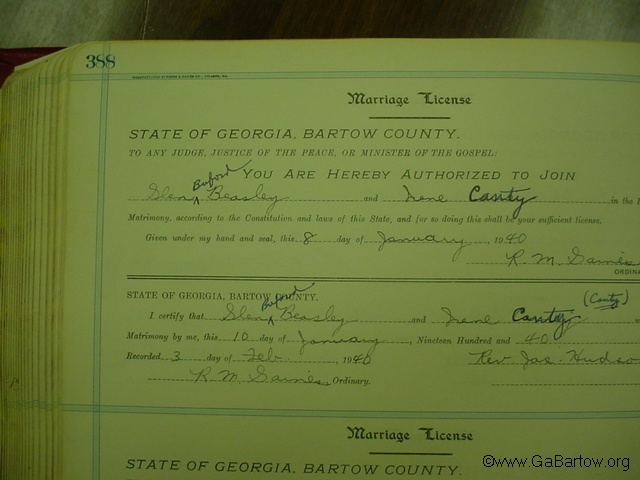 388
Marriage License
STATE OF GEORGIA, BARTOW COUNTY.
TO ANY JUDGE, JUSTICE OF THE PEACE, OR MINISTER OF THE GOSPEL:
YOU ARE HEREBY AUTHORIZED TO JOIN
Buford
Glen Beasley and Irene Canty in the
Matrimony, according to the Constitution and laws of this State, and for so doing this shall be your sufficient license.
Given under my hand and seal, this 8 day of January, 1940
R. M. Gaines
ORDINA
STATE OF GEORGIA, BARTOW COUNTY.
Buford
(Canty)
I certify that Glen Beasley and Irene Canty
Matrimony by me, this 10 day of January, Nineteen Hundred and 40
Recorded 3 day of Feb. 1940 Rev. Jas. Hudso
R. M. Gaines Ordinary.
Marriage License
STATE OF GEORGIA, BARTOW COUNTY.
©www.GaBartow.org